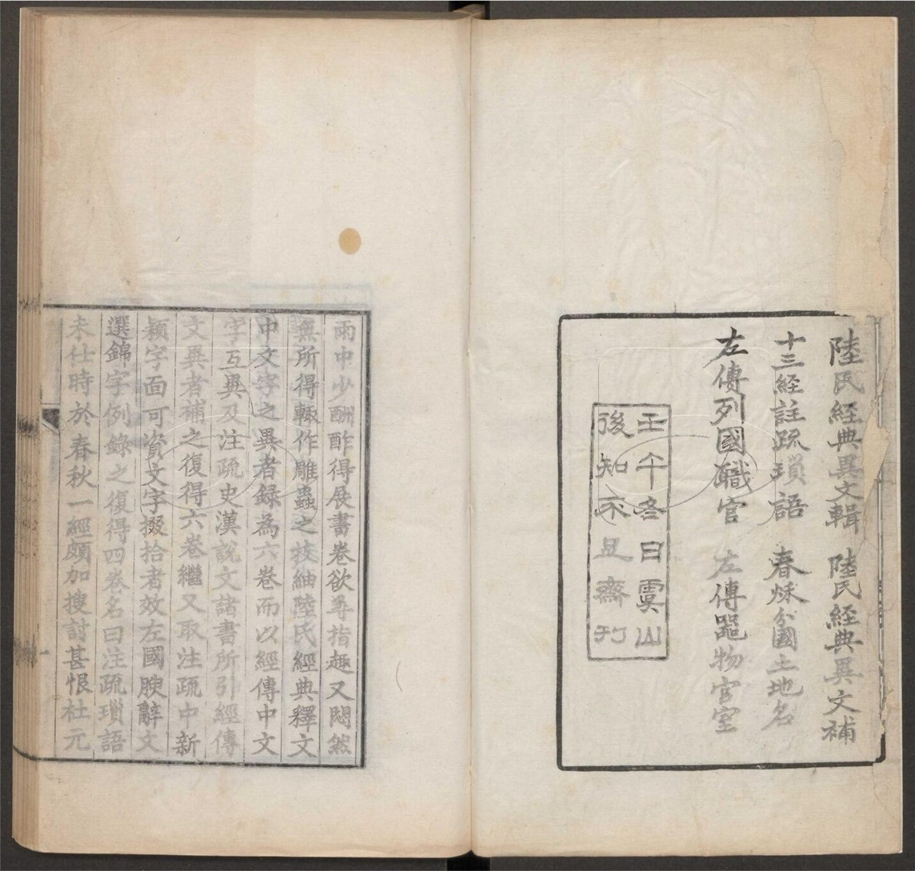 陸氏經典異文輯 陸氏經典異文補
十三經註疏瑣語 春秌分國土地名
左傳列國職官 左傳噐物宫室
壬午冬日虞山
後知不足齋刊
雨中少酬酢得展書卷欲尋指趣又悶然
無所得輙作雕蟲之技紬陸氏經典釋文
中文字之異者録為六卷而以經傳中文
字互異及注疏史漢說文諸書所引經傳
文異者補之復得六卷繼又取注疏中新
穎字面可資文字掇拾者效左國腴辭文
選錦字例錄之復得四卷名曰注疏瑣語
未仕時於春秋一經頗加搜討甚恨杜元